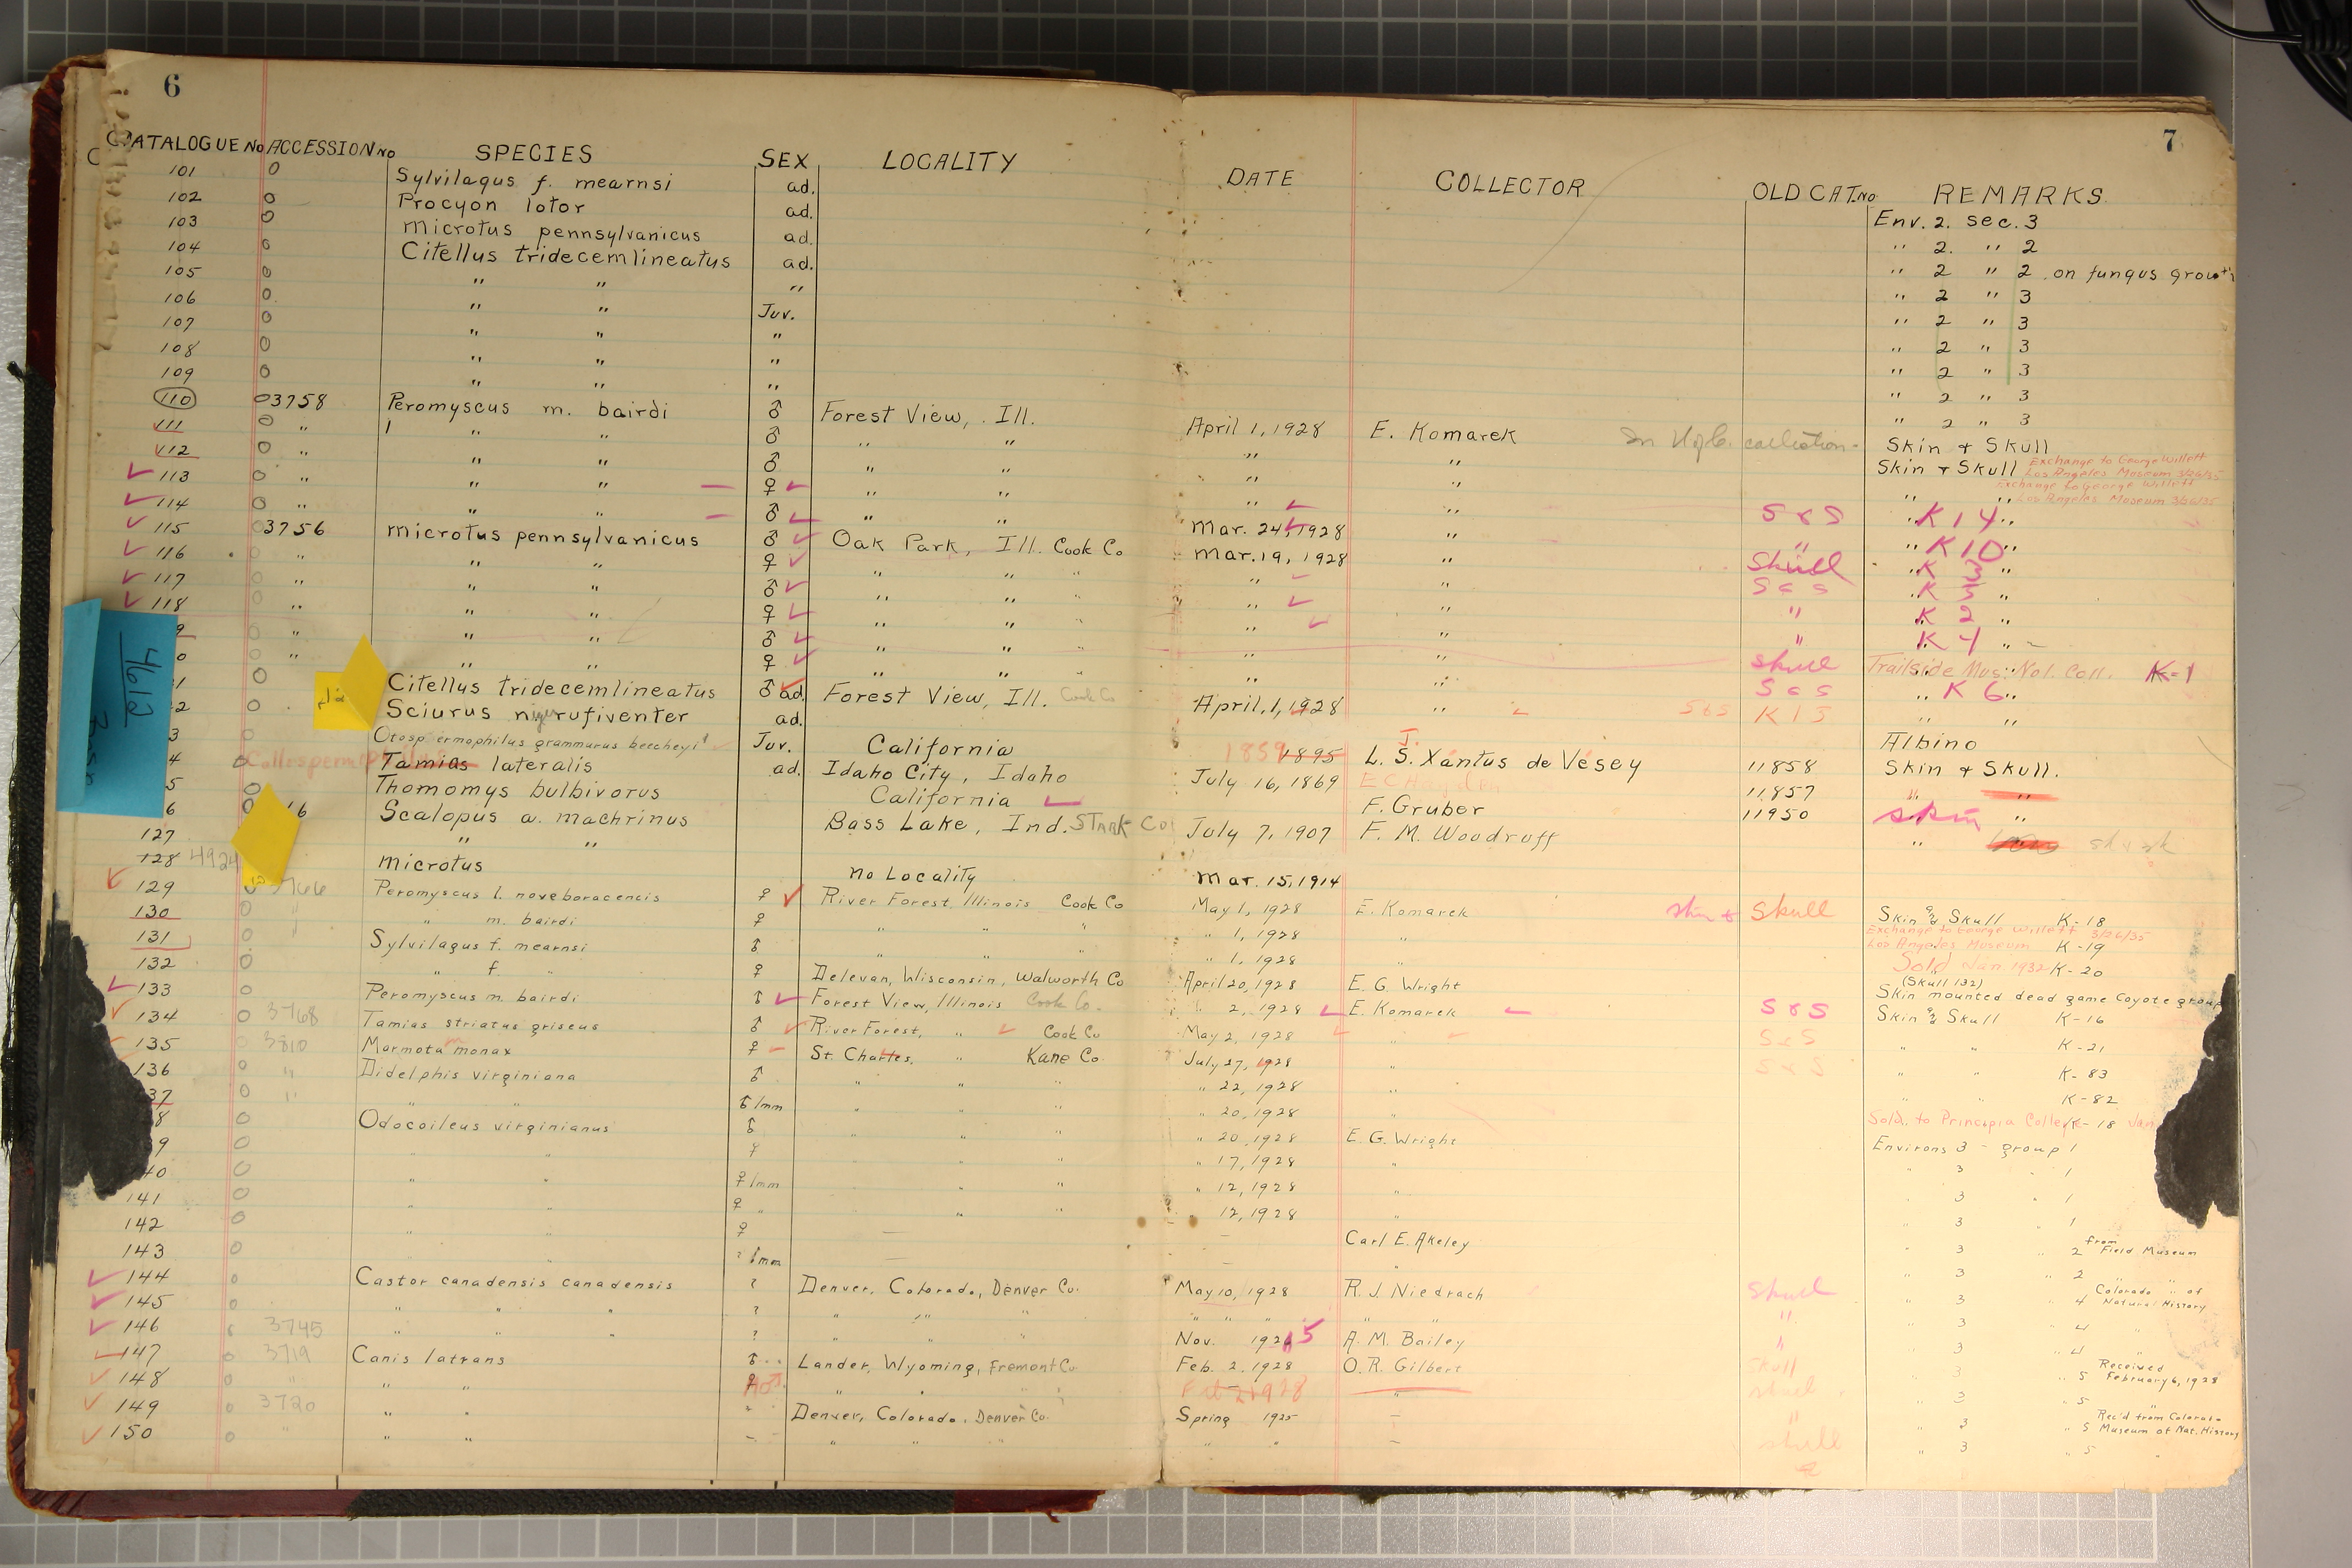 6
7
CATALOGUE No ACCESSION No SPECIES SEX LOCALITY DATE COLLECTOR OLD CAT. No REMARKS
101 0 Sylvilagus f. mearnsi ad. Env. 2. sec. 3
102 0 Procyon lotor ad. " 2. " 2
103 0 Microtus pennsylvanicus ad. " 2 " 2 on fungus growth
104 0 Citellus tridecemlineatus ad. " 2 " 3
105 0 " " " " 2 " 3
106 0 " " Juv. " 2 " 3
107 0 " " " " 2 " 3
108 0 " " " " 2 " 3
109 0 " " " " 2 " 3
110 03758 Peromyscus m. bairdi ♂ Forest View, Ill. April 1, 1928 E. Komarek collection - Skin & Skull
111 0 " " " ♂ " " " " Skin & Skull Exchange to George Willett Los Angeles Museum 3/26/35
112 0 " " " ♂ " " " " " " Exchange to George Willett Los Angeles Museum 3/26/35
113 0 " " " ♀ " " " " S & S " K 14 "
114 0 " " " ♂ " " Mar. 24, 1928 " " " K 10 "
115 03756 Microtus pennsylvanicus ♂ Oak Park, Ill. Cook Co Mar. 19, 1928 " Skull " K 3 "
116 " " " ♀ " " " " " S & S " K 5 "
117 " " " ♂ " " " " " " " K 2 "
118 " " " ♀ " " " " " " " K 4 "
9 " " " ♂ " " " " " skull Trailside Mus. Nat. Coll. K-1
0 " " " ♀ " " " " " S & S " K 6 "
1 0 Citellus tridecemlineatus ♂ ad. Forest View, Ill. Cook Co April, 1, 1928 " S & S K 15 " "
2 0 Sciurus niger rufiventer ad. Albino
3 Otospermophilus grammurus beecheyi Juv. California 1859 1895 L. S. J. Xántus de Vésey 11858 Skin & Skull.
4 0 Callospermophilus Tamias lateralis ad. Idaho City, Idaho July 16, 1869 E C Hayden 11857 " "
5 0 Thomomys bulbivorus California F. Gruber 11950 skin "
6 0 16 Scalopus a. machrinus Bass Lake, Ind. STARK Co July 7, 1907 F. M. Woodruff "
127 " "
128 4924 Microtus No Locality Mar. 15, 1914
129 3766 Peromyscus l. noveboracencis ♀ River Forest, Illinois Cook Co May 1, 1928 E. Komarek skin & skull Skin & Skull K-18
130 0 " " m. bairdi ♀ " " " " 1, 1928 " Exchange to George Willett 3/26/35 Los Angeles Museum K-19
131 0 Sylvilagus f. mearnsi ♂ " " " " 1, 1928 " Sold Jan 1932 K-20
132 0 " f. " ♀ Delevan, Wisconsin, Walworth Co April 20, 1928 E. G. Wright (Skull 132) Skin mounted dead game Coyote group
133 0 Peromyscus m. bairdi ♂ Forest View, Illinois Cook Co. " 2, 1928 E. Komarek S & S Skin & Skull K-16
134 0 3768 Tamias striatus griseus ♂ River Forest, " Cook Co May 2, 1928 " S & S " " K-21
135 3810 Marmota m monax ♀ St. Charles, " Kane Co. July 27, 1928 " S & S " " K-83
136 0 " Didelphis virginiana ♂ " " " " 22, 1928 " " " K-82
37 0 " " " ♂ Imm " " " " 20, 1928 " Sold. to Principia College K-18 Jan
8 0 Odocoileus virginianus ♂ " " " " 20, 1928 E. G. Wright Environs 3 - group 1
9 0 " " ♀ " " " " 17, 1928 " " 3 " 1
40 0 " " ♀ Imm " " " 12, 1928 " " 3 " 1
141 0 " " ♀ " " " " 12, 1928 " " 3 " 1
142 0 " " ♀ — - Carl E. Akeley " 3 " 2 from Field Museum
143 0 " " ? Imm — - " " 3 " 2 " "
144 0 Castor canadensis canadensis ? Denver, Colorado, Denver Co. May 10, 1928 R. J. Niedrach skull " 3 " 4 Colorado " of Natural History
145 0 " " " ? " " " " " " " " " 3 " 4 "
146 3745 " " " ? " " " Nov. 1925 A. M. Bailey " " 3 " 4 "
147 0 3719 Canis latrans ♂ Lander, Wyoming, Fremont Co. Feb. 2, 1928 O. R. Gilbert skull " 3 " 5 Received February 6, 1928
148 0 " " " ♀ " " " Feb 2 1928 " skull " 3 " 5 "
149 0 3720 " " " Denver, Colorado, Denver Co. Spring 1925 — " " 3 " 5 Rec'd from Colorado Museum of Nat. History
150 0 " " " - " " " " " — skull " 3 " 5 "
4612